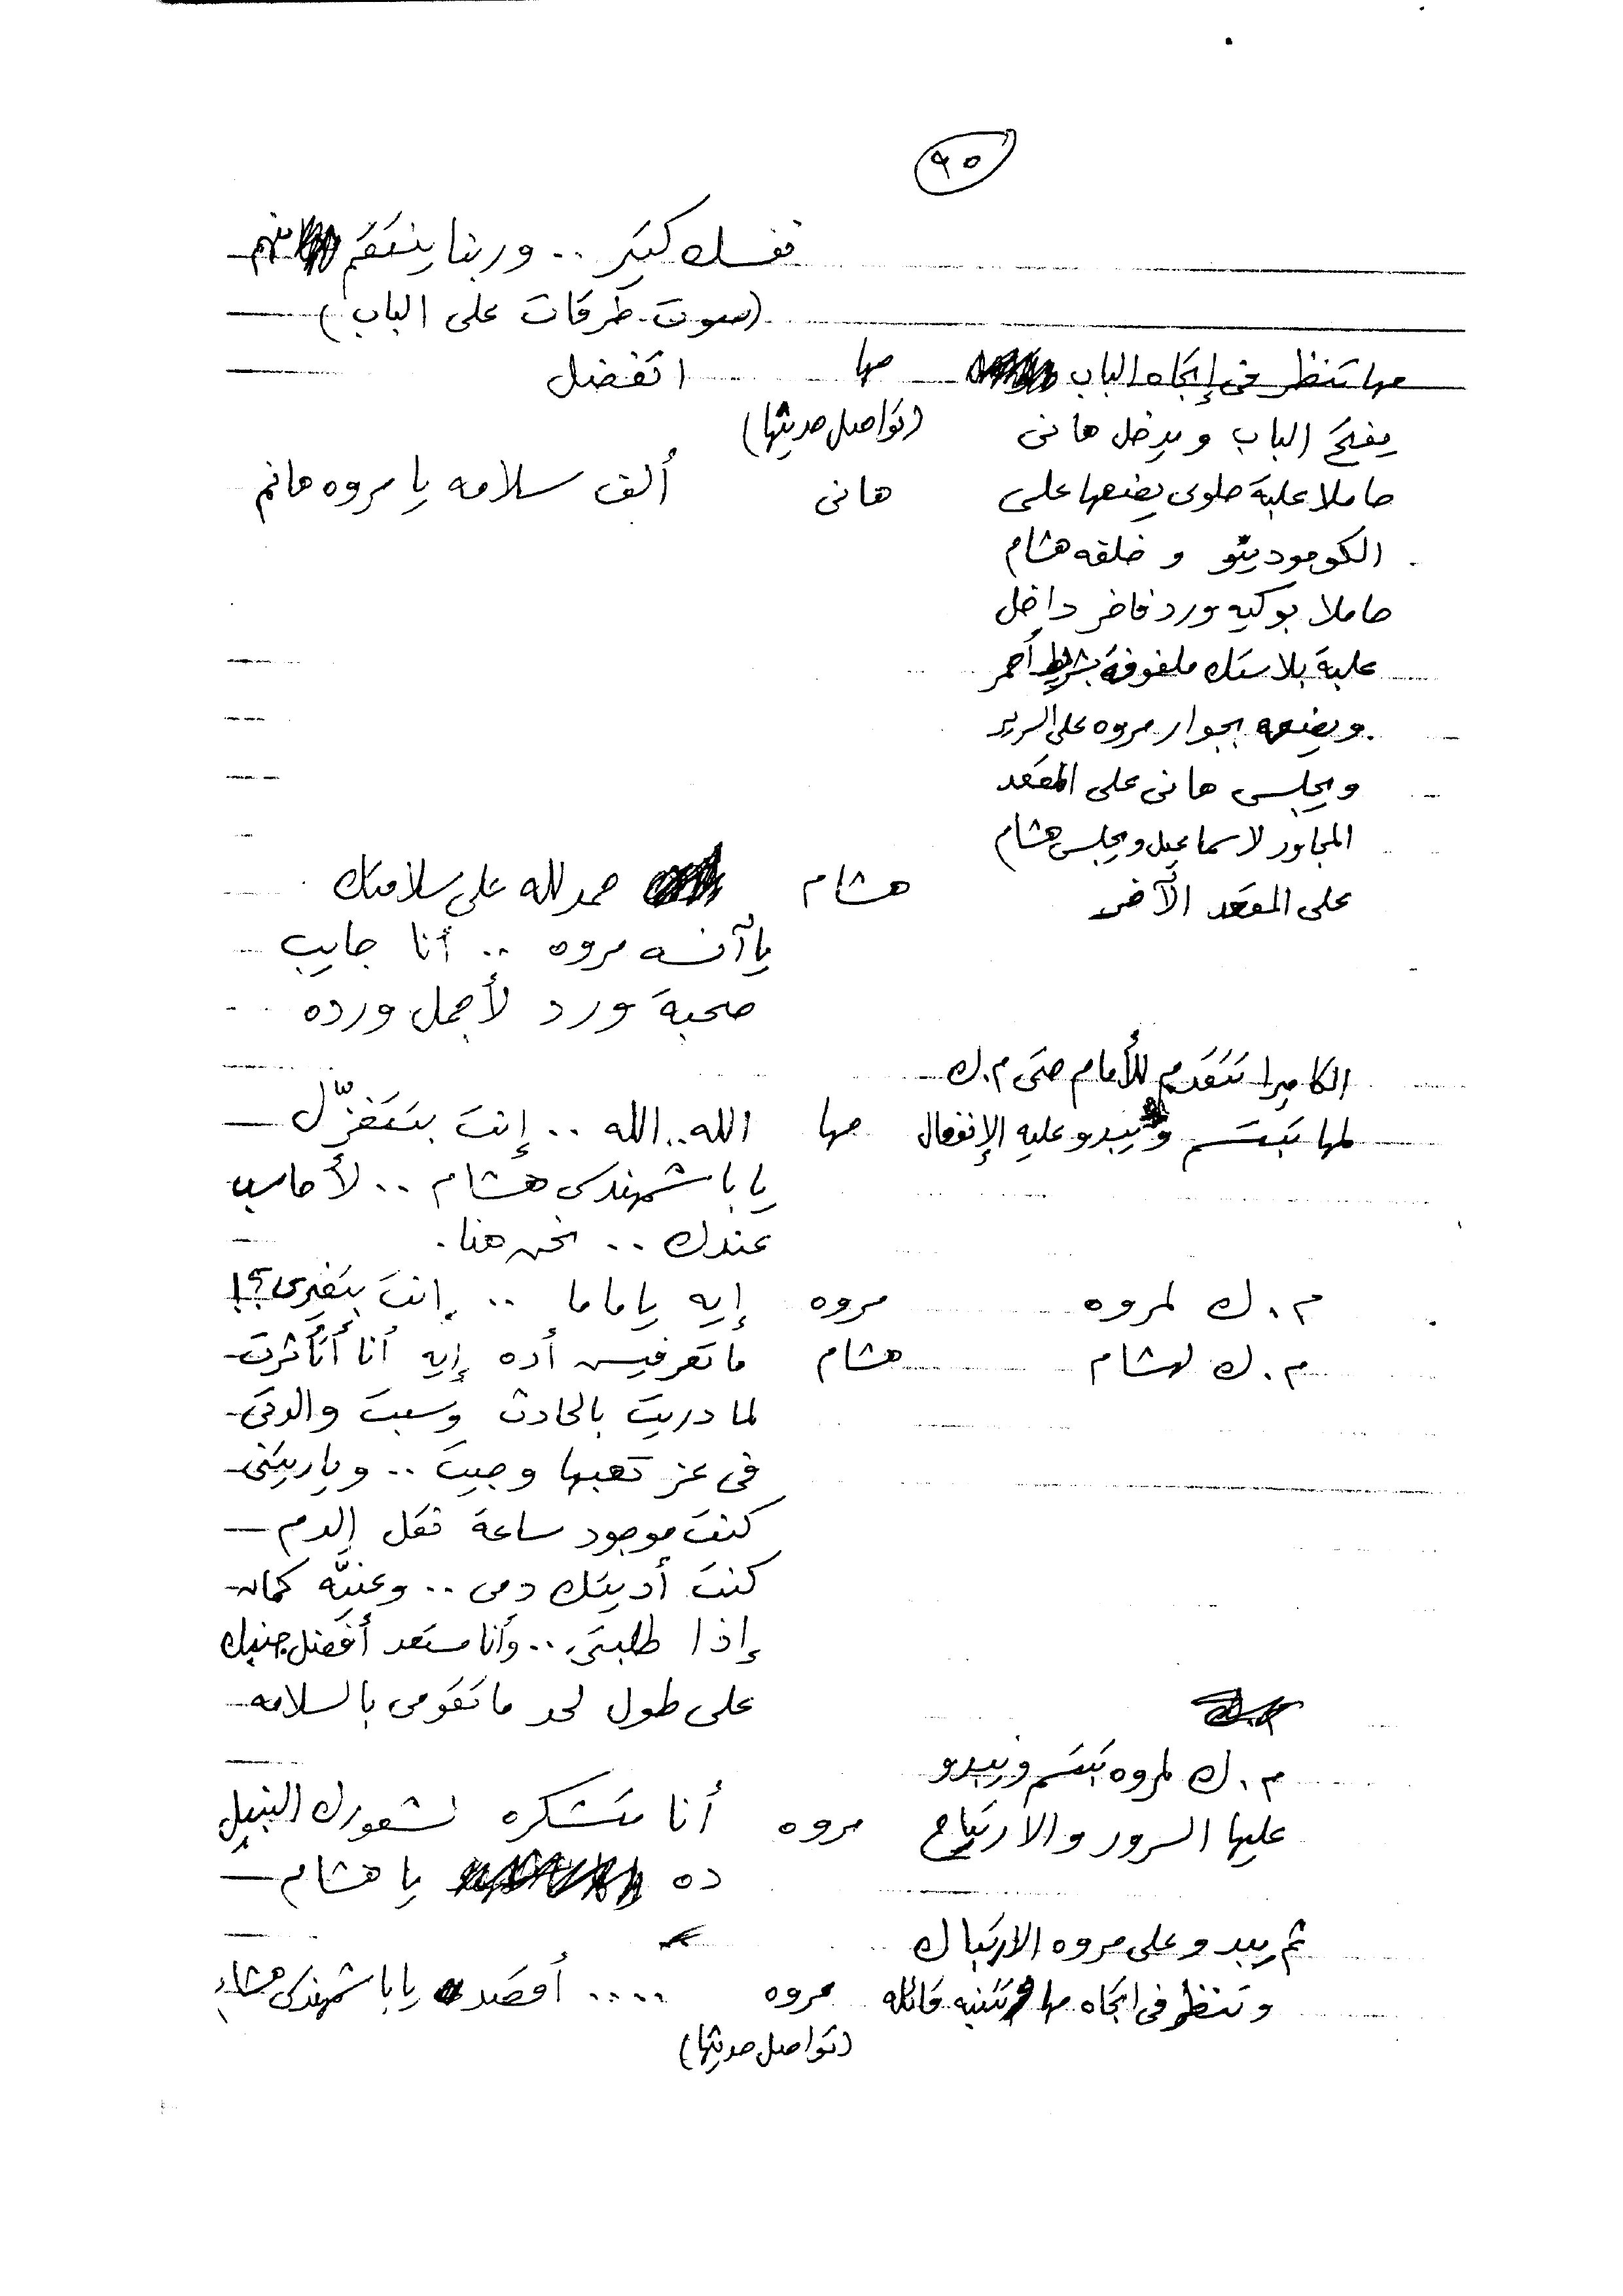 ٩٥
نفسك كبير .. وربنا ينتقم منهم
(صوت طرقات على الباب)
مها تنظر فى إتجاه الباب مها اتفضل
يفتح الباب ويدخل هانى (تواصل حديثها)
حاملا علبة حلوى يضعها على هانى ألف سلامه يا مروه هانم
الكومودينو و خلفه هشام
حاملا بوكيه ورد فاخر داخل
علبة بلاستك ملفوفة بشريط أحمر
ويضعه بجوار مروه على السرير
ويجلس هانى على المقعد
المجاور لاسماعيل ويجلس هشام
على المقعد الآخر هشام حمد لله على سلامتك
يا آنسه مروه .. أنا جايب
صحبة ورد لأجمل ورده
الكاميرا تتقدم للأمام حتى م.ك
لمها تبتسم ويبدو عليه الإنفعال مها الله..الله .. إنت بتتغزّل
يا باشمهندس هشام .. لأ حاسب
عندك .. نحن هنا.
م.ك لمروه مروه إيه يا ماما .. إنت بتغيرى؟!
م.ك لهشام هشام ماتعرفيس أده إيه أنا أتأثرت
لما دريت بالحادث وسبت والدتى
فى عز تعبها وجيت .. وياريتنى
كنت موجود ساعة نقل الدم
كنت أديتك دمى .. وعنيّه كمان
إذا طلبتى .. وأنا مستعد أفضل جنبك
على طول لحد ما تقومى بالسلامه
م.ك لمروه تبتسم ويبدو
عليها السرور والارتياح مروه أنا متشكره لشعورك النبيل
ده يا هشام
ثم يبدو على مروه الارتباك
وتنظر فى اتجاه مها وتنتبه قائله مروه .... أقصد يا باشمهندس هشام
(تواصل حديثها)